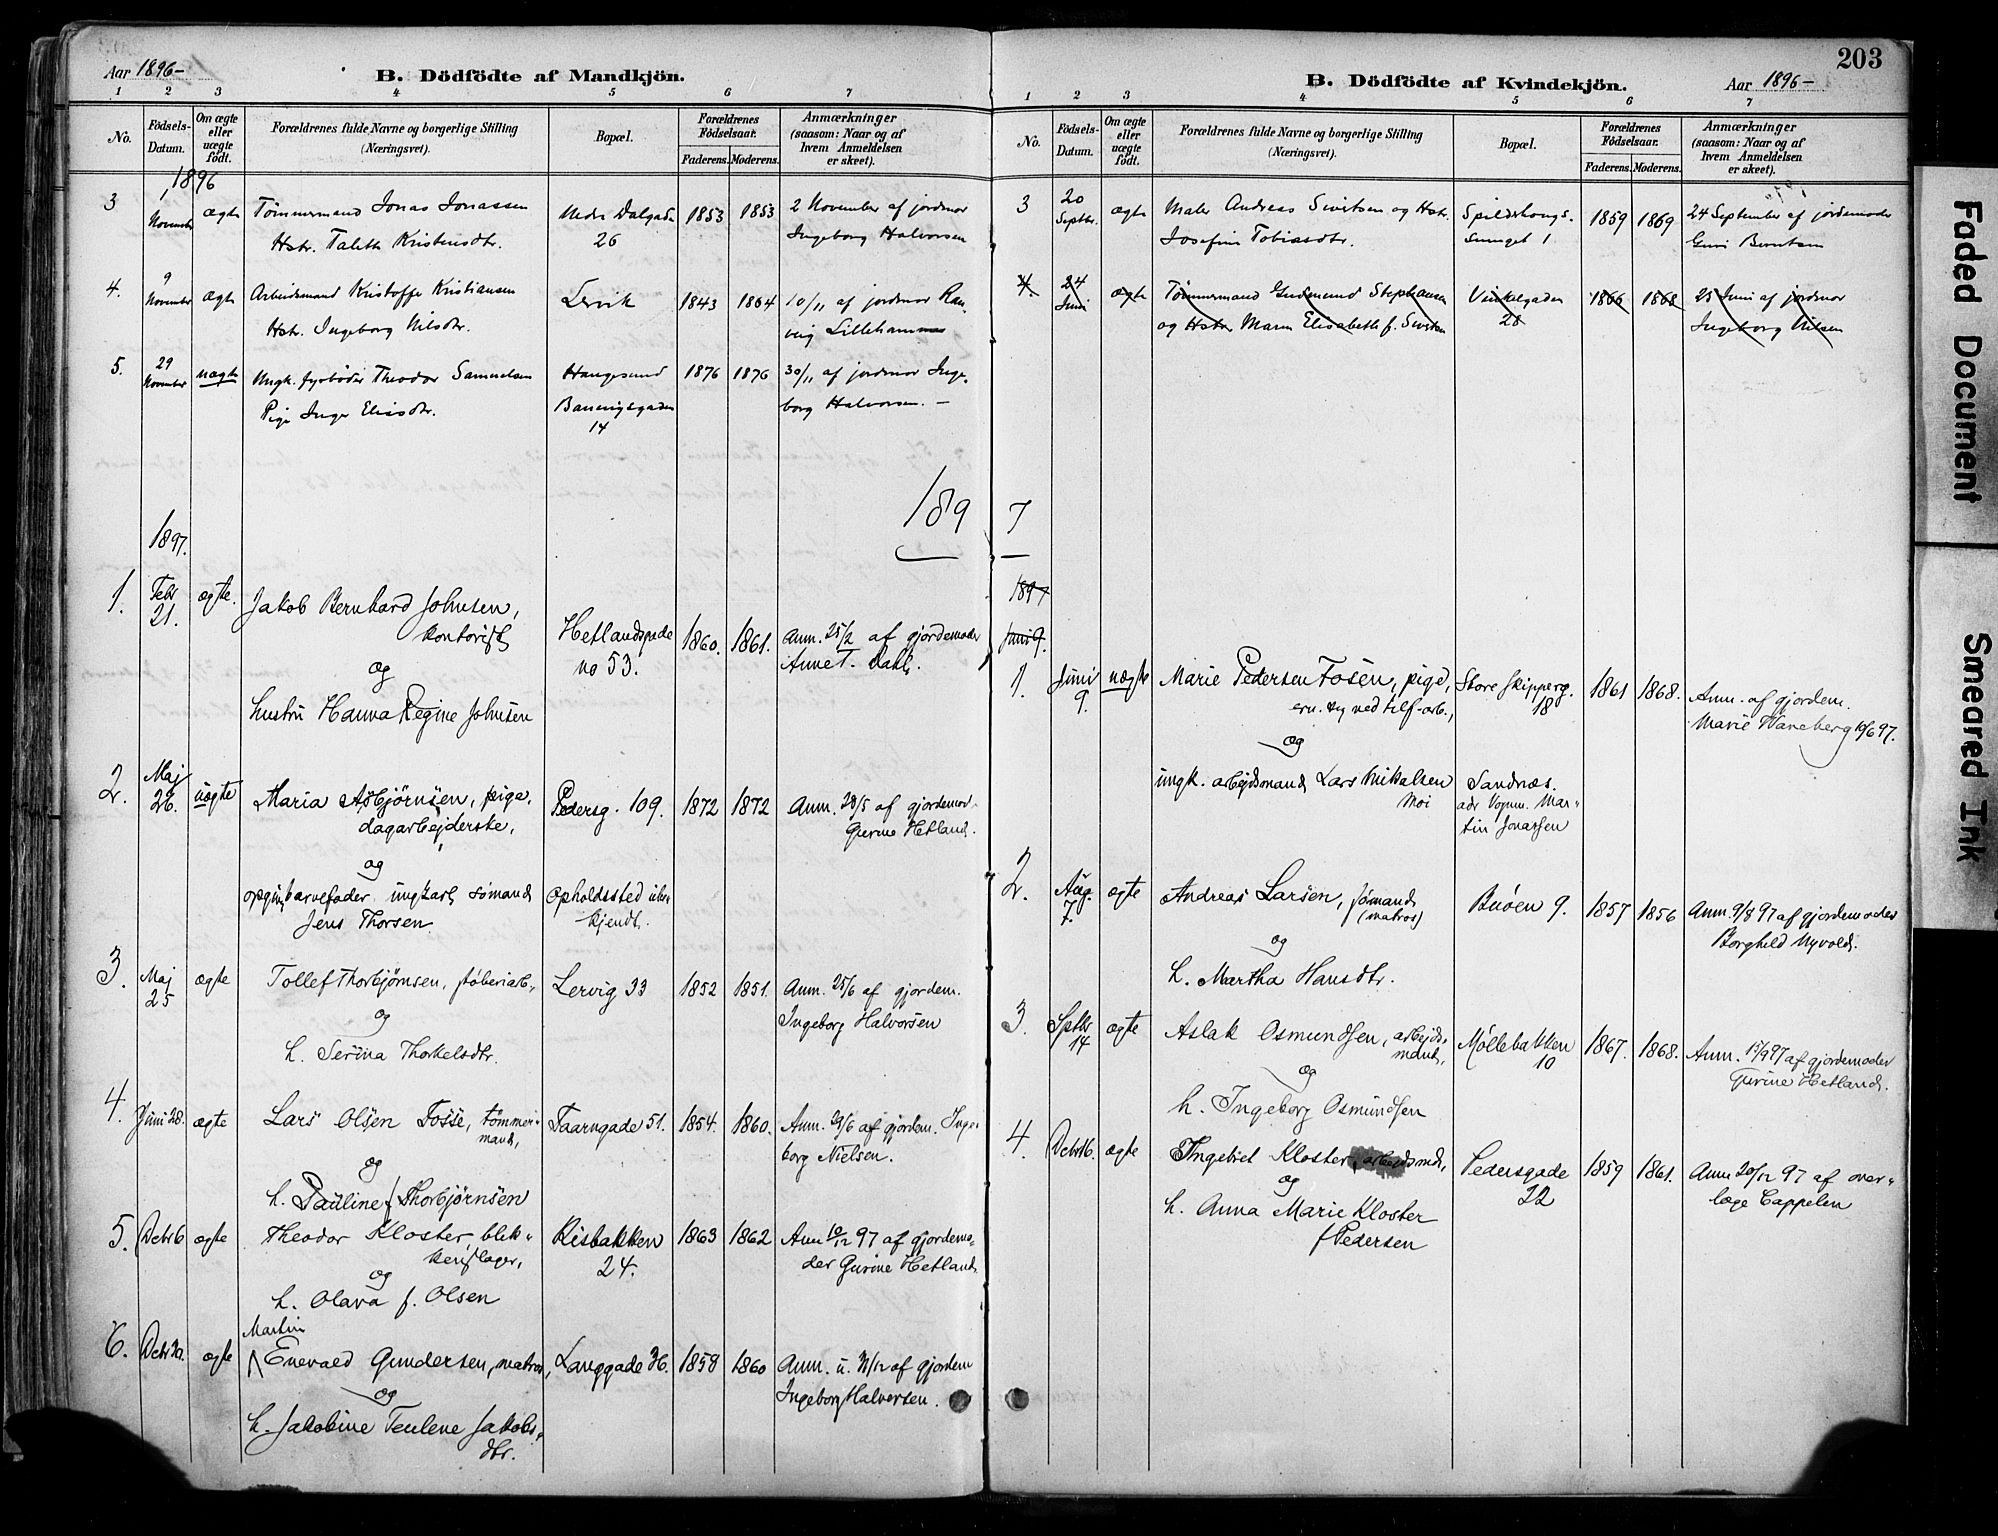 Aar 1896-
B. Dödfödte af Mandkjön.
1 2 3 4 5 6 7
No.
Födsels-Datum.
Om ægte eller uægte födt.
Forældrenes fulde Navne og borgerlige Stilling (Næringsvei).
Bopæl.
Forældrenes Födselsaar.
Faderens. Moderens.
Anmærkninger (saasom: Naar og af hvem Anmeldelsen er skeet).
1896
3 1 November ægte Tømmermand Jonas Jonassen Nedre Dalgade 1853 1853 2 November af jordmor
Hstr. Talette Kristensdtr. 26 Ingeborg Halvorsen
4. 9 November ægte Arbeidsmand Kristoffe Kristiansen Lervik 1843 1864 10/11 af jordmor Ran-
Hstr. Ingeborg Nilsdtr. veig Lillehammer
5. 29 November uægte Ungk. fyrbøder Theodor Samuelsen Haugesund 1876 1876 30/11 af jordmor Inge-
Pige Inger Eliasdtr. 14 borg Halvorsen. -
189
1897.
1. Febr 21. ægte. Jakob Bernhard Johnsen,
kontorist Hetlandsgade 1860. 1861. Anm. 25/2 af gjordemoder
og no 53. Anne T. Dahl.
hustru Hanna Regine Johnsen
2. Maj 26. uægte Maria Asbjørnsen, pige, Pedersg. 109. 1872 1872 Anm. 28/5 af gjordemod.
dagarbejderske, Gurine Hetland.
og
opgiven barnefader ungkarl sømand Opholdssted ube-
Jens Thorsen kjendt.
3. Maj 25 ægte Tollef Thorbjørnsen, støberiarb., Lervig 33 1852 1851. Anm. 25/6 af gjordem.
og Ingeborg Halvorsen
h. Serina Thorkelsdtr.
4. Juni 28. ægte Lars Olsen Fosse, tømmer- Taarngade 51. 1854. 1860. Anm. 29/6 af gjordem. Inge-
mand, borg Nielsen.
og
h. Pauline f Thorbjørnsen
5. Debr 6 ægte Theodor Kloster, blik- Risbakken 1863 1862 Anm 10/12 97 af gjordemo-
kenslager, 24. der Gurine Hetland.
og
h. Olava f. Olsen
Martin
6. Debr 30. ægte Enevald Gundersen, matros, Langgade 36. 1858 1860 Anm. u. 31/12 af gjordem
og Ingeborg Halvorsen.
h. Jakobine Teulene Jakobs-
dtr.
203
B. Dödfödte af Kvindekjön.
Aar 1896-
1 2 3 4 5 6 7
No.
Födsels-Datum.
Om ægte eller uægte födt.
Forældrenes fulde Navne og borgerlige Stilling (Næringsvei).
Bopæl.
Forældrenes Födselsaar.
Faderens. Moderens.
Anmærkninger (saasom: Naar og af hvem Anmeldelsen er skeet).
3 20 Septbr. ægte Maler Andreas Sivitsen og Hstr. 1859 1869 24 September af jordemoder
Josefine Tobiasdtr. Smuget 1 Guri Berntsen
4. 24 Juni ægte Tømmermand Gudmund Stephansen Vinkelgaden 1866 1868 25 Juni af jordmor
og Hstr. Maren Elisabeth f. Sivitsen 28 Ingeborg Nilsen
7
1897
Juni 9.
1. Juni 9. uægte Marie Pedersen Fosen, pige, Store Skipperg. 1861 1868. Anm. af gjordem.
ern. sig ved tilf. arb., 18 Marie Waneberg 10/6 97.
og
ungk. arbejdsmand Lars Mikalsen Sandnæs.
Moi adr Vognm. Mar-
tin Jonassen
2. Aug. 7. ægte Andreas Larsen, sømand Buøen 9. 1857 1856 Anm. 9/8 97 af gjordemoder
(matros) Borghild Nyvold.
og
h. Martha Hansdtr.
3. Sptbr 14 ægte Aslak Osmundsen, arbejds- Møllebakken 1867. 1868. Anm. 17/9 97 af gjordemoder
mand, 10 Gurine Hetland.
og
h. Ingeborg Osmundsen
4. Debr 16. ægte Ingebret Kloster, arbejdsmd., Pedersgade 1859 1861. Anm 20/12 97 af over-
og 22 læge Cappelen
h. Anna Marie Kloster
f Pedersen
Faded Document
Smeared Ink